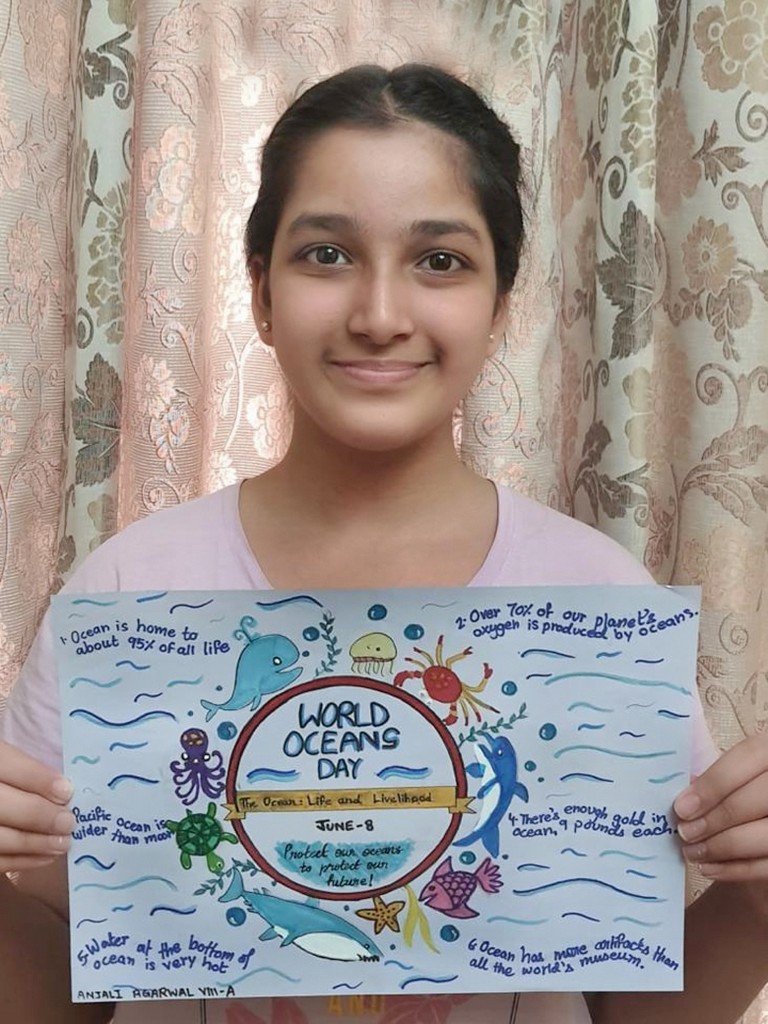 1. Ocean is home to
about 95% of all life
2. Over 70% of our planet's
oxygen is produced by oceans.
WORLD
OCEANS
DAY
The Ocean: Life and Livelihood
JUNE-8
Protect our oceans
to protect our
future!
Pacific ocean is
wider than moon
4. There's enough gold in
ocean, 9 pounds each.
5. Water at the bottom of
ocean is very hot
6 Ocean has more artifacts than
all the world's museum.
ANJALI AGARWAL VIII-A
AND